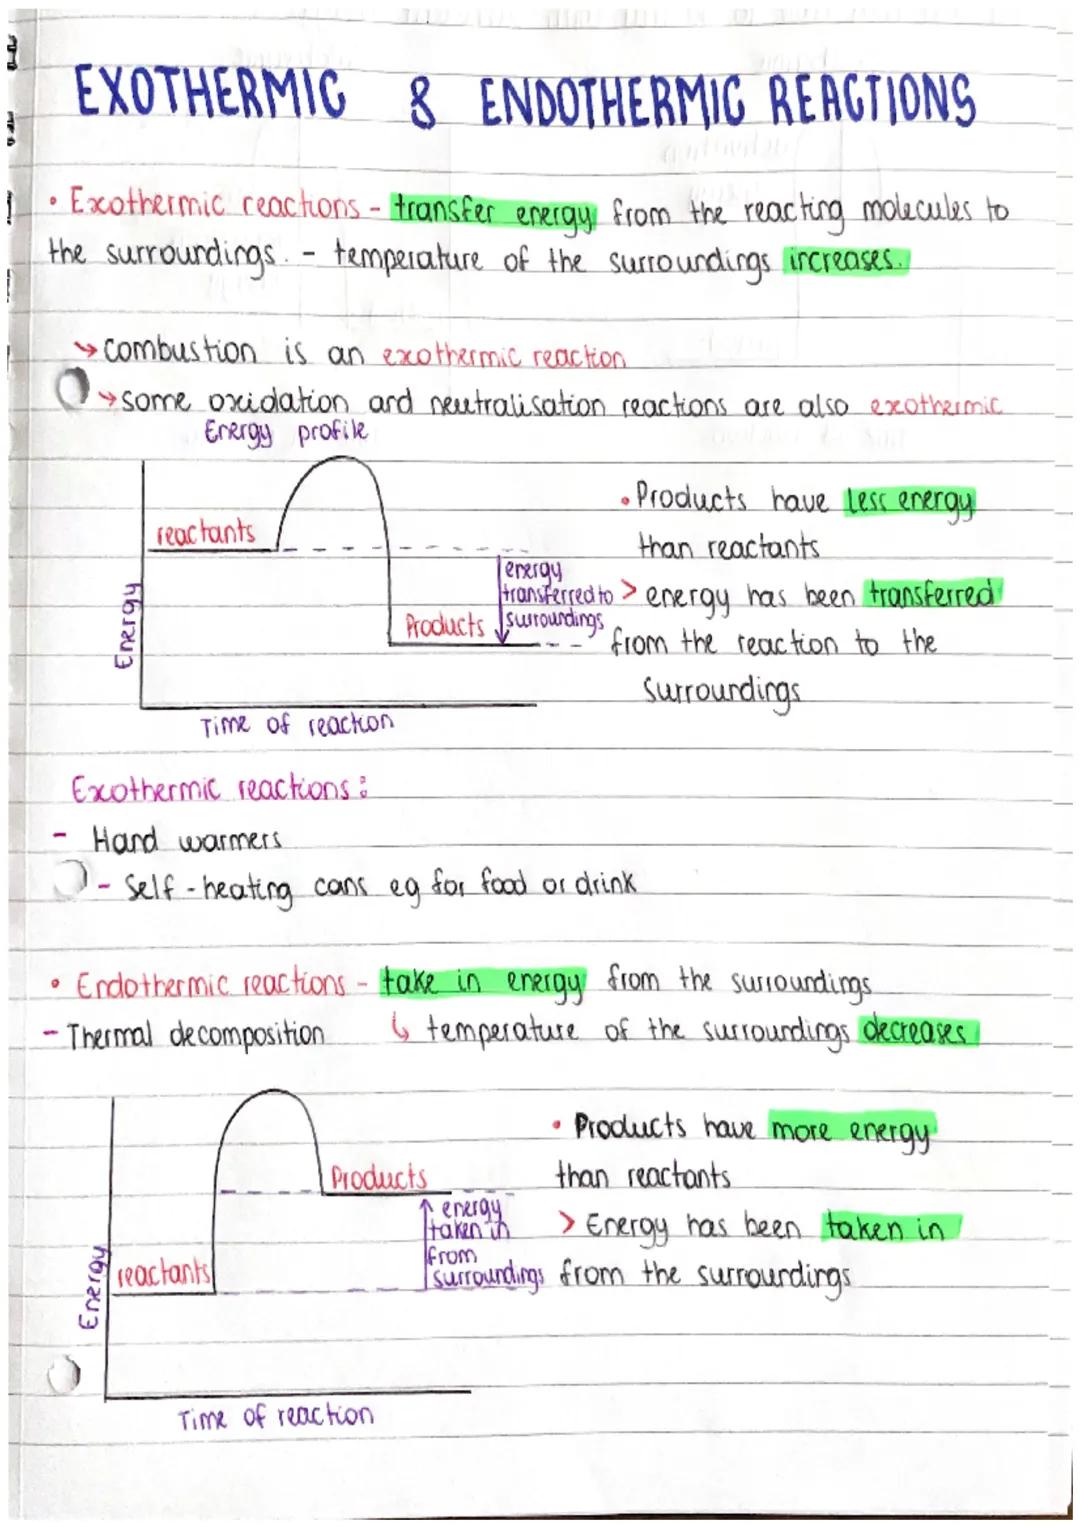 EXOTHERMIC & ENDOTHERMIC REACTIONS
• Exothermic reactions - transfer energy from the reacting molecules to
the surroundings. - temperature of the surroundings increases.
↳ combustion is an exothermic reaction
↳ some oxidation and neutralisation reactions are also exothermic
Energy profile
reactants
Energy
Products
energy
transferred to
surroundings
Time of reaction
• Products have less energy
than reactants
> energy has been transferred
from the reaction to the
surroundings
Exothermic reactions:
- Hand warmers
- Self-heating cans eg for food or drink
• Endothermic reactions - take in energy from the surroundings
- Thermal decomposition ↳ temperature of the surroundings decreases
Products
energy
taken in
from
surroundings
reactants
Energy
Time of reaction
• Products have more energy
than reactants
> Energy has been taken in
from the surroundings